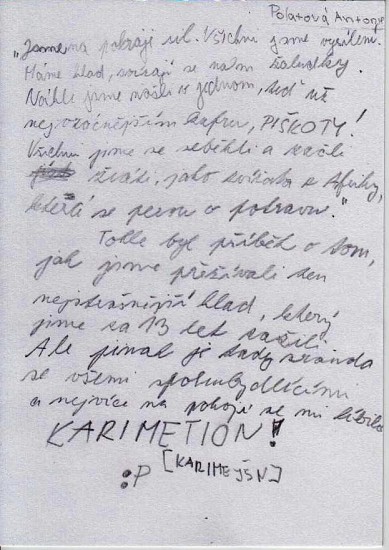 Polatová Antonie
„Jsme na pokraji sil. Všichni jsme vysíleni.
Máme hlad, svírají se nám žaludky.
Náhle jsme našli v jednom, teď už
nejvzácnějším kufru, PIŠKOTY!
Všichni jsme se seběhli a začli
žvást, jako zvířata z Afriky,
kteří se perou o potravu."
Tohle byl příběh o tom,
jak jsme přežívali ten
nejstrašnější hlad, který
jsme za 13 let zažili.
Ale jinak je tady sranda
se všemi spolubydlícími
a nejvíce na pokoji se mi líbilo
KARIMETION!
[KARIMEJŠN]
:P